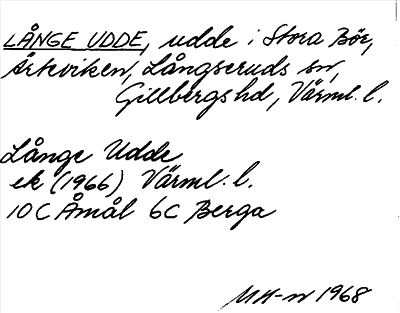 LÅNGE UDDE, udde i Stora Bör,
Årkviken, Långseruds sn,
Gillbergs hd, Värml. l.
Långe Udde
ek (1966) Värml. l.
10 C Åmål 6C Berga
1968